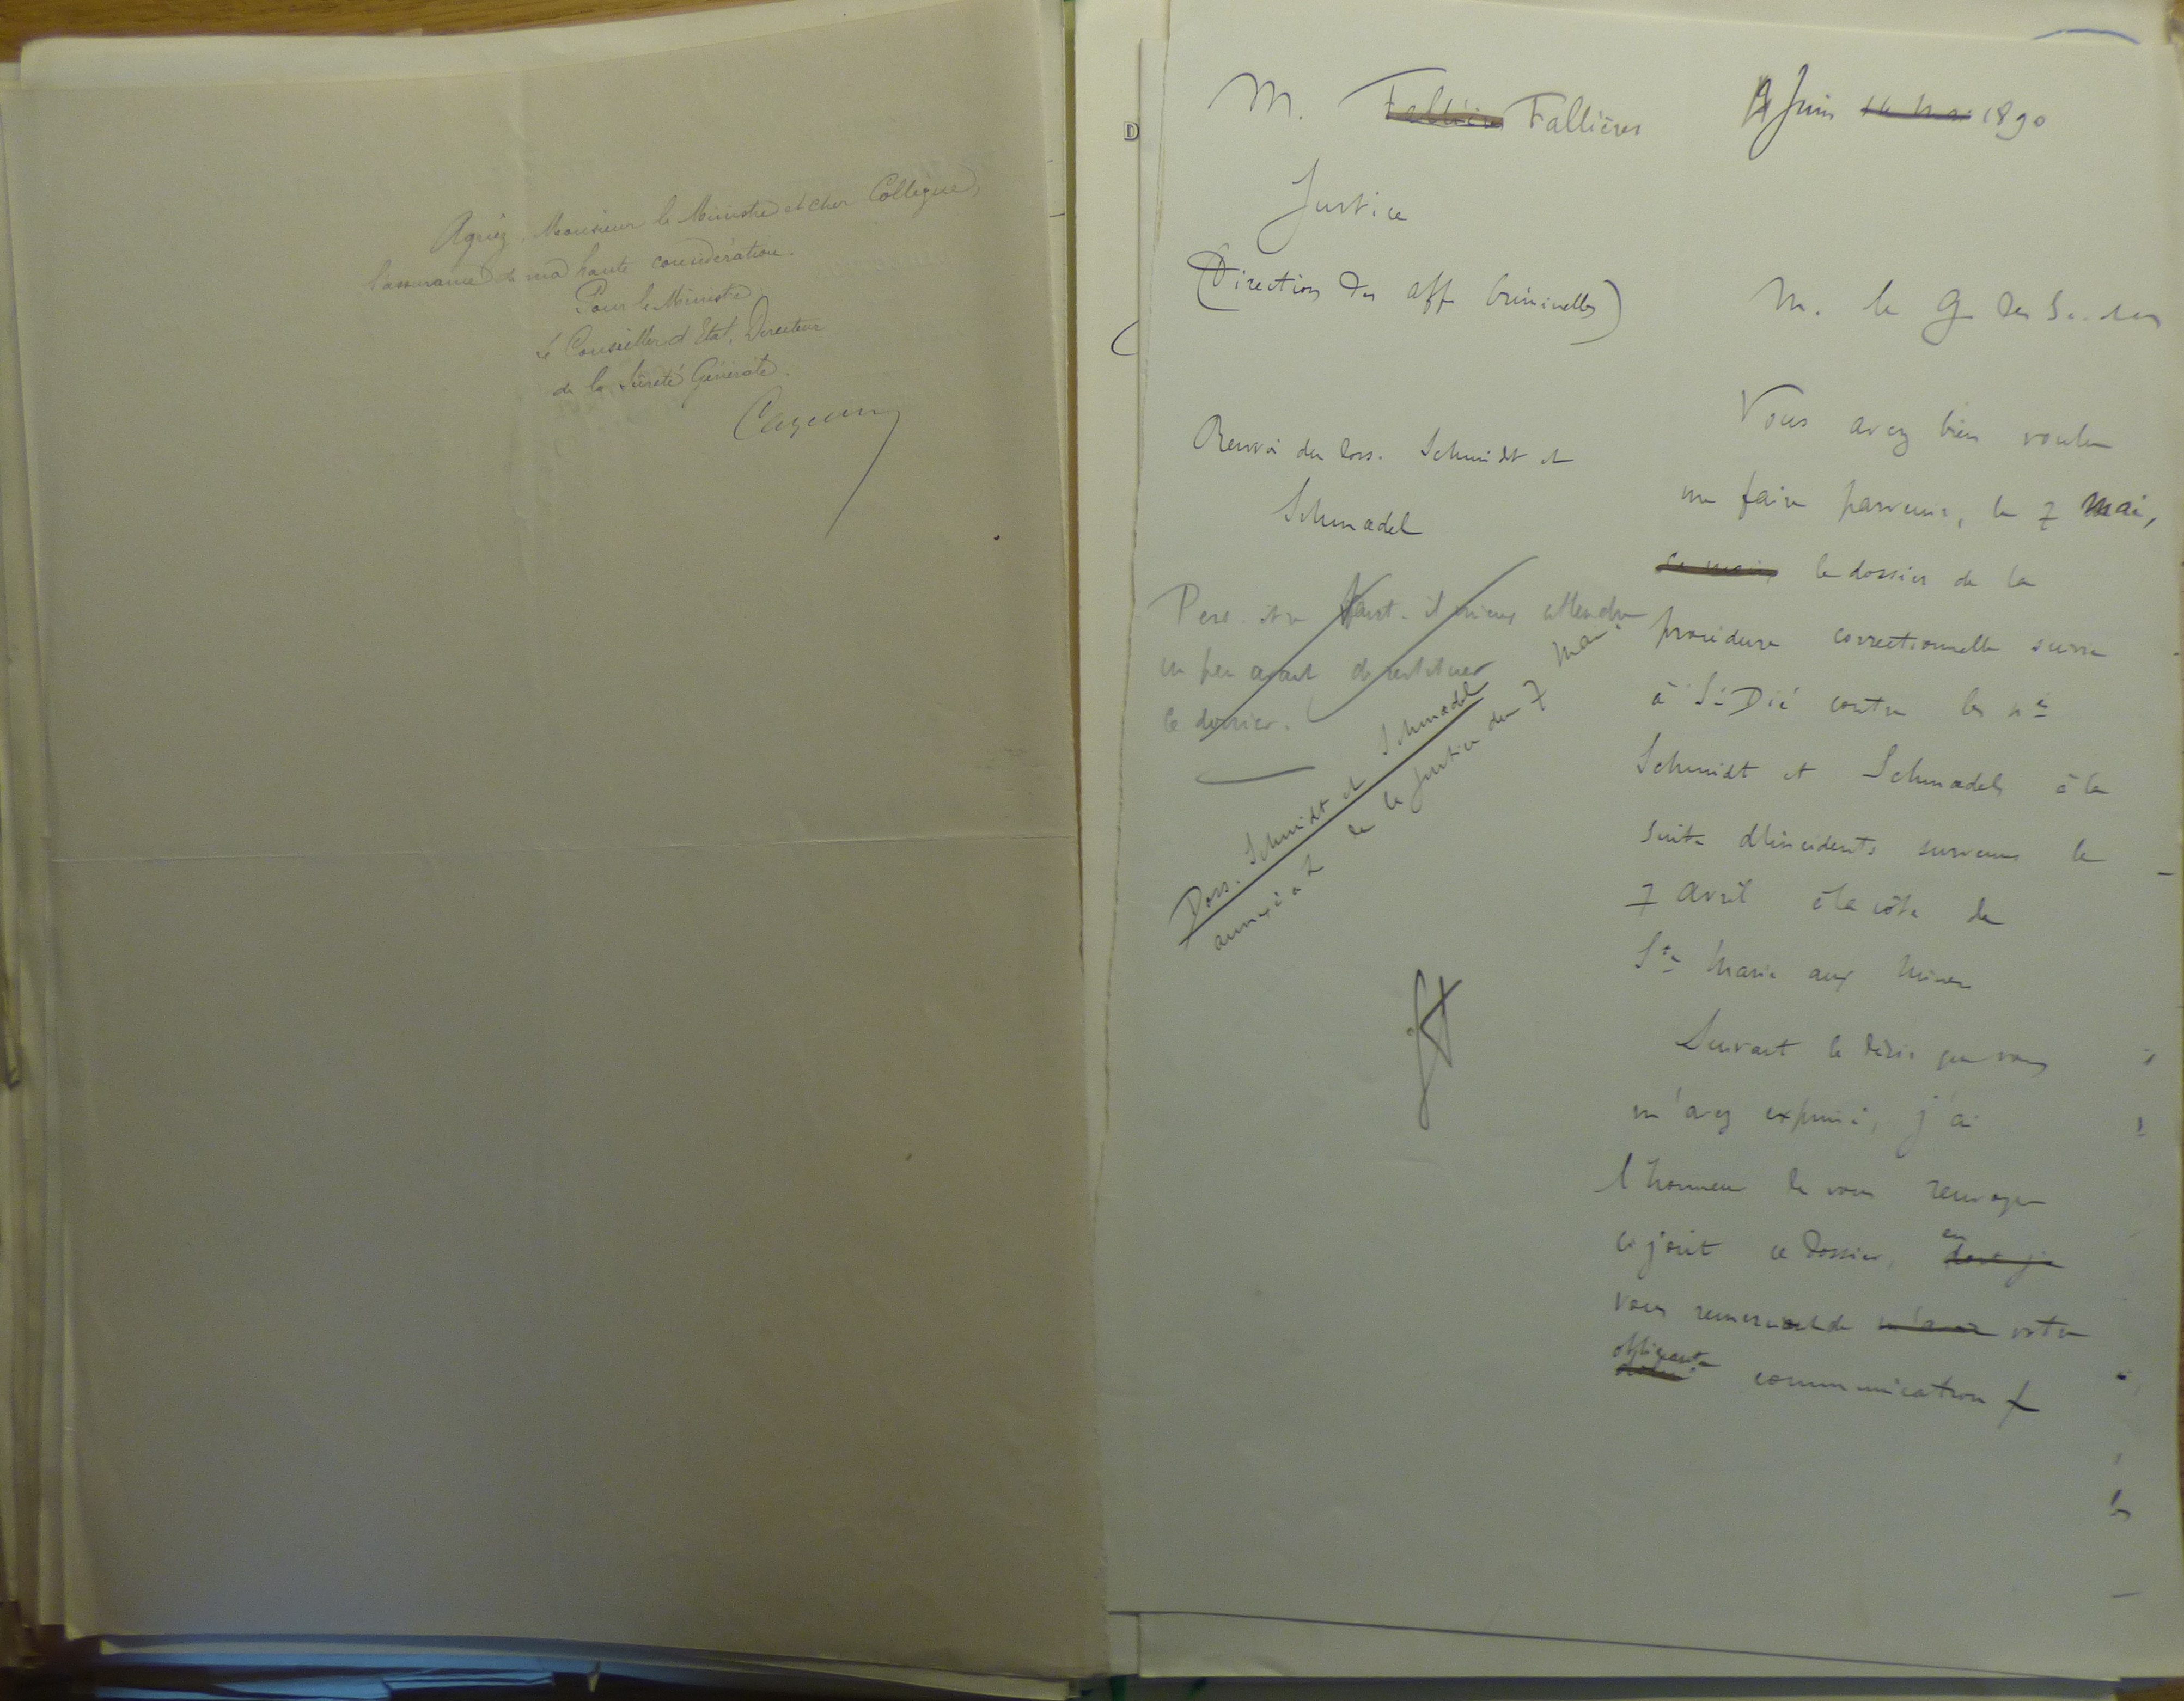 Agréez, Monsieur le Ministre et cher Collègue,
l'assurance de ma haute considération.
Pour le Ministre,
Le Conseiller d'Etat, Directeur
de la Sûreté Générale.
D
M. Fallières Fallières
Juin 14 Mai 1890
Justice
(Direction des aff Criminelles)
Renvoi du doss. Schmidt et
Schmædel
Peut être faut-il mieux attendre
un peu avant de restituer
le dossier.
Doss. Schmidt et Schmædel
annexé à L de la Justice du 7 mai
M. le G des Sceaux
Vous avez bien voulu
me faire parvenir, le 7 Mai,
ce mois, le dossier de la
procédure correctionnelle suivie
à St Dié contre les nés
Schmidt et Schmædel à la
suite d'incidents survenus le
7 Avril à la côte de
Ste Marie aux Mines
Suivant le désir que vous
m'avez exprimé, j'ai
l'honneur de vous renvoyer
ci joint ce dossier, en
dont je
vous remerciant de m'avoir votre
obligeante
communication